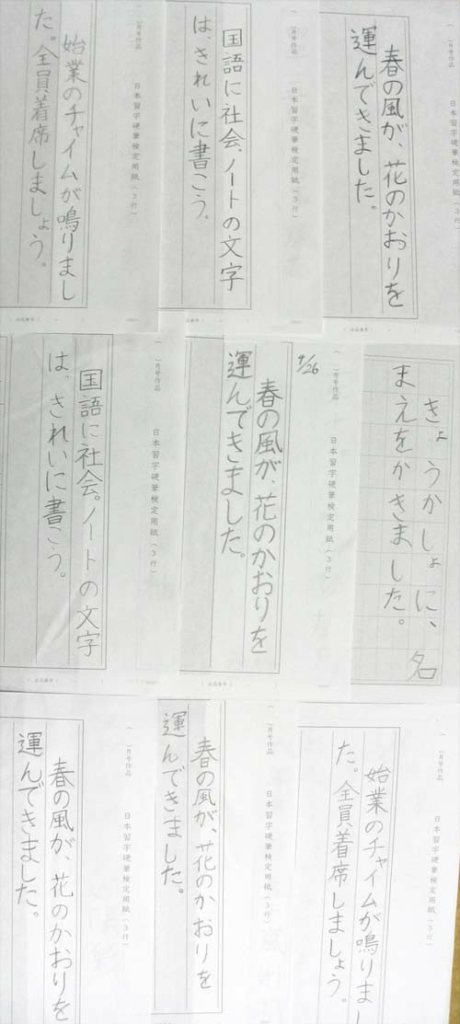 月号作品
春の風が、花のかおりを
運んできました。
月号作品
日本習字硬筆検定用紙（３行）
国語に社会、ノートの文字
は、きれいに書こう。
月号作品
日本習字硬筆検定用紙（３行）
始業のチャイムが鳴りまし
た。全員着席しましょう。
きょうかしょに、名
まえをかきました。
月号作品
日本習字硬筆検定用紙（３行）
9/26
春の風が、花のかおりを
運んできました。
月号作品
日本習字硬筆検定用紙（３行）
国語に社会。ノートの文字
は、きれいに書こう。
月号作品
日本習字硬筆検定用紙（３行）
始業のチャイムが鳴りまし
た。全員着席しましょう。
月号作品
日本習字硬筆検定用紙（３行）
春の風が、花のかおりを
運んできました。
月号作品
日本習字硬筆検定用紙（３行）
春の風が、花のかおりを
運んできました。